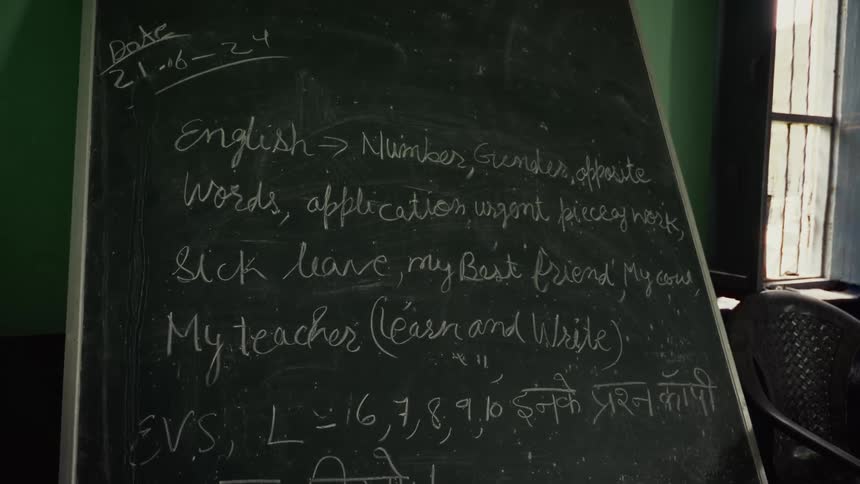 Date
21-16-24
English → Number, Gender, opposite
Words, application urgent piece of work,
Sick leave, my Best friend, My cow,
My teacher (Learn and Write)
EVS, L = 16, 7, 8, 9, 10 इनके प्रश्न कॉपी